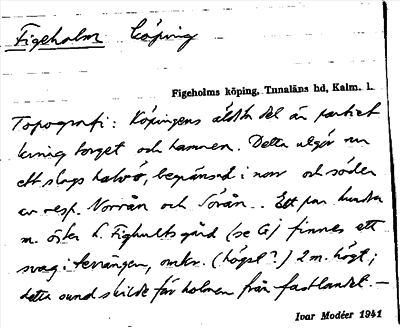 Figeholm köping
Figeholms köping, Tunaläns hd, Kalm. l.
Topografi: Köpingens äldsta del är partiet
kring torget och hamnen. Detta utgör nu
ett slags halvö, begränsad i norr och söder
av resp. Norrån och Sörån. Ett par hundra
m. öster L. Fighults gård (se G) finnes ett
svag i terrängen, omkr. (högst?) 2 m. högt;
detta sund skilde förr holmen från fastlandet. —
Ivar Modéer 1941